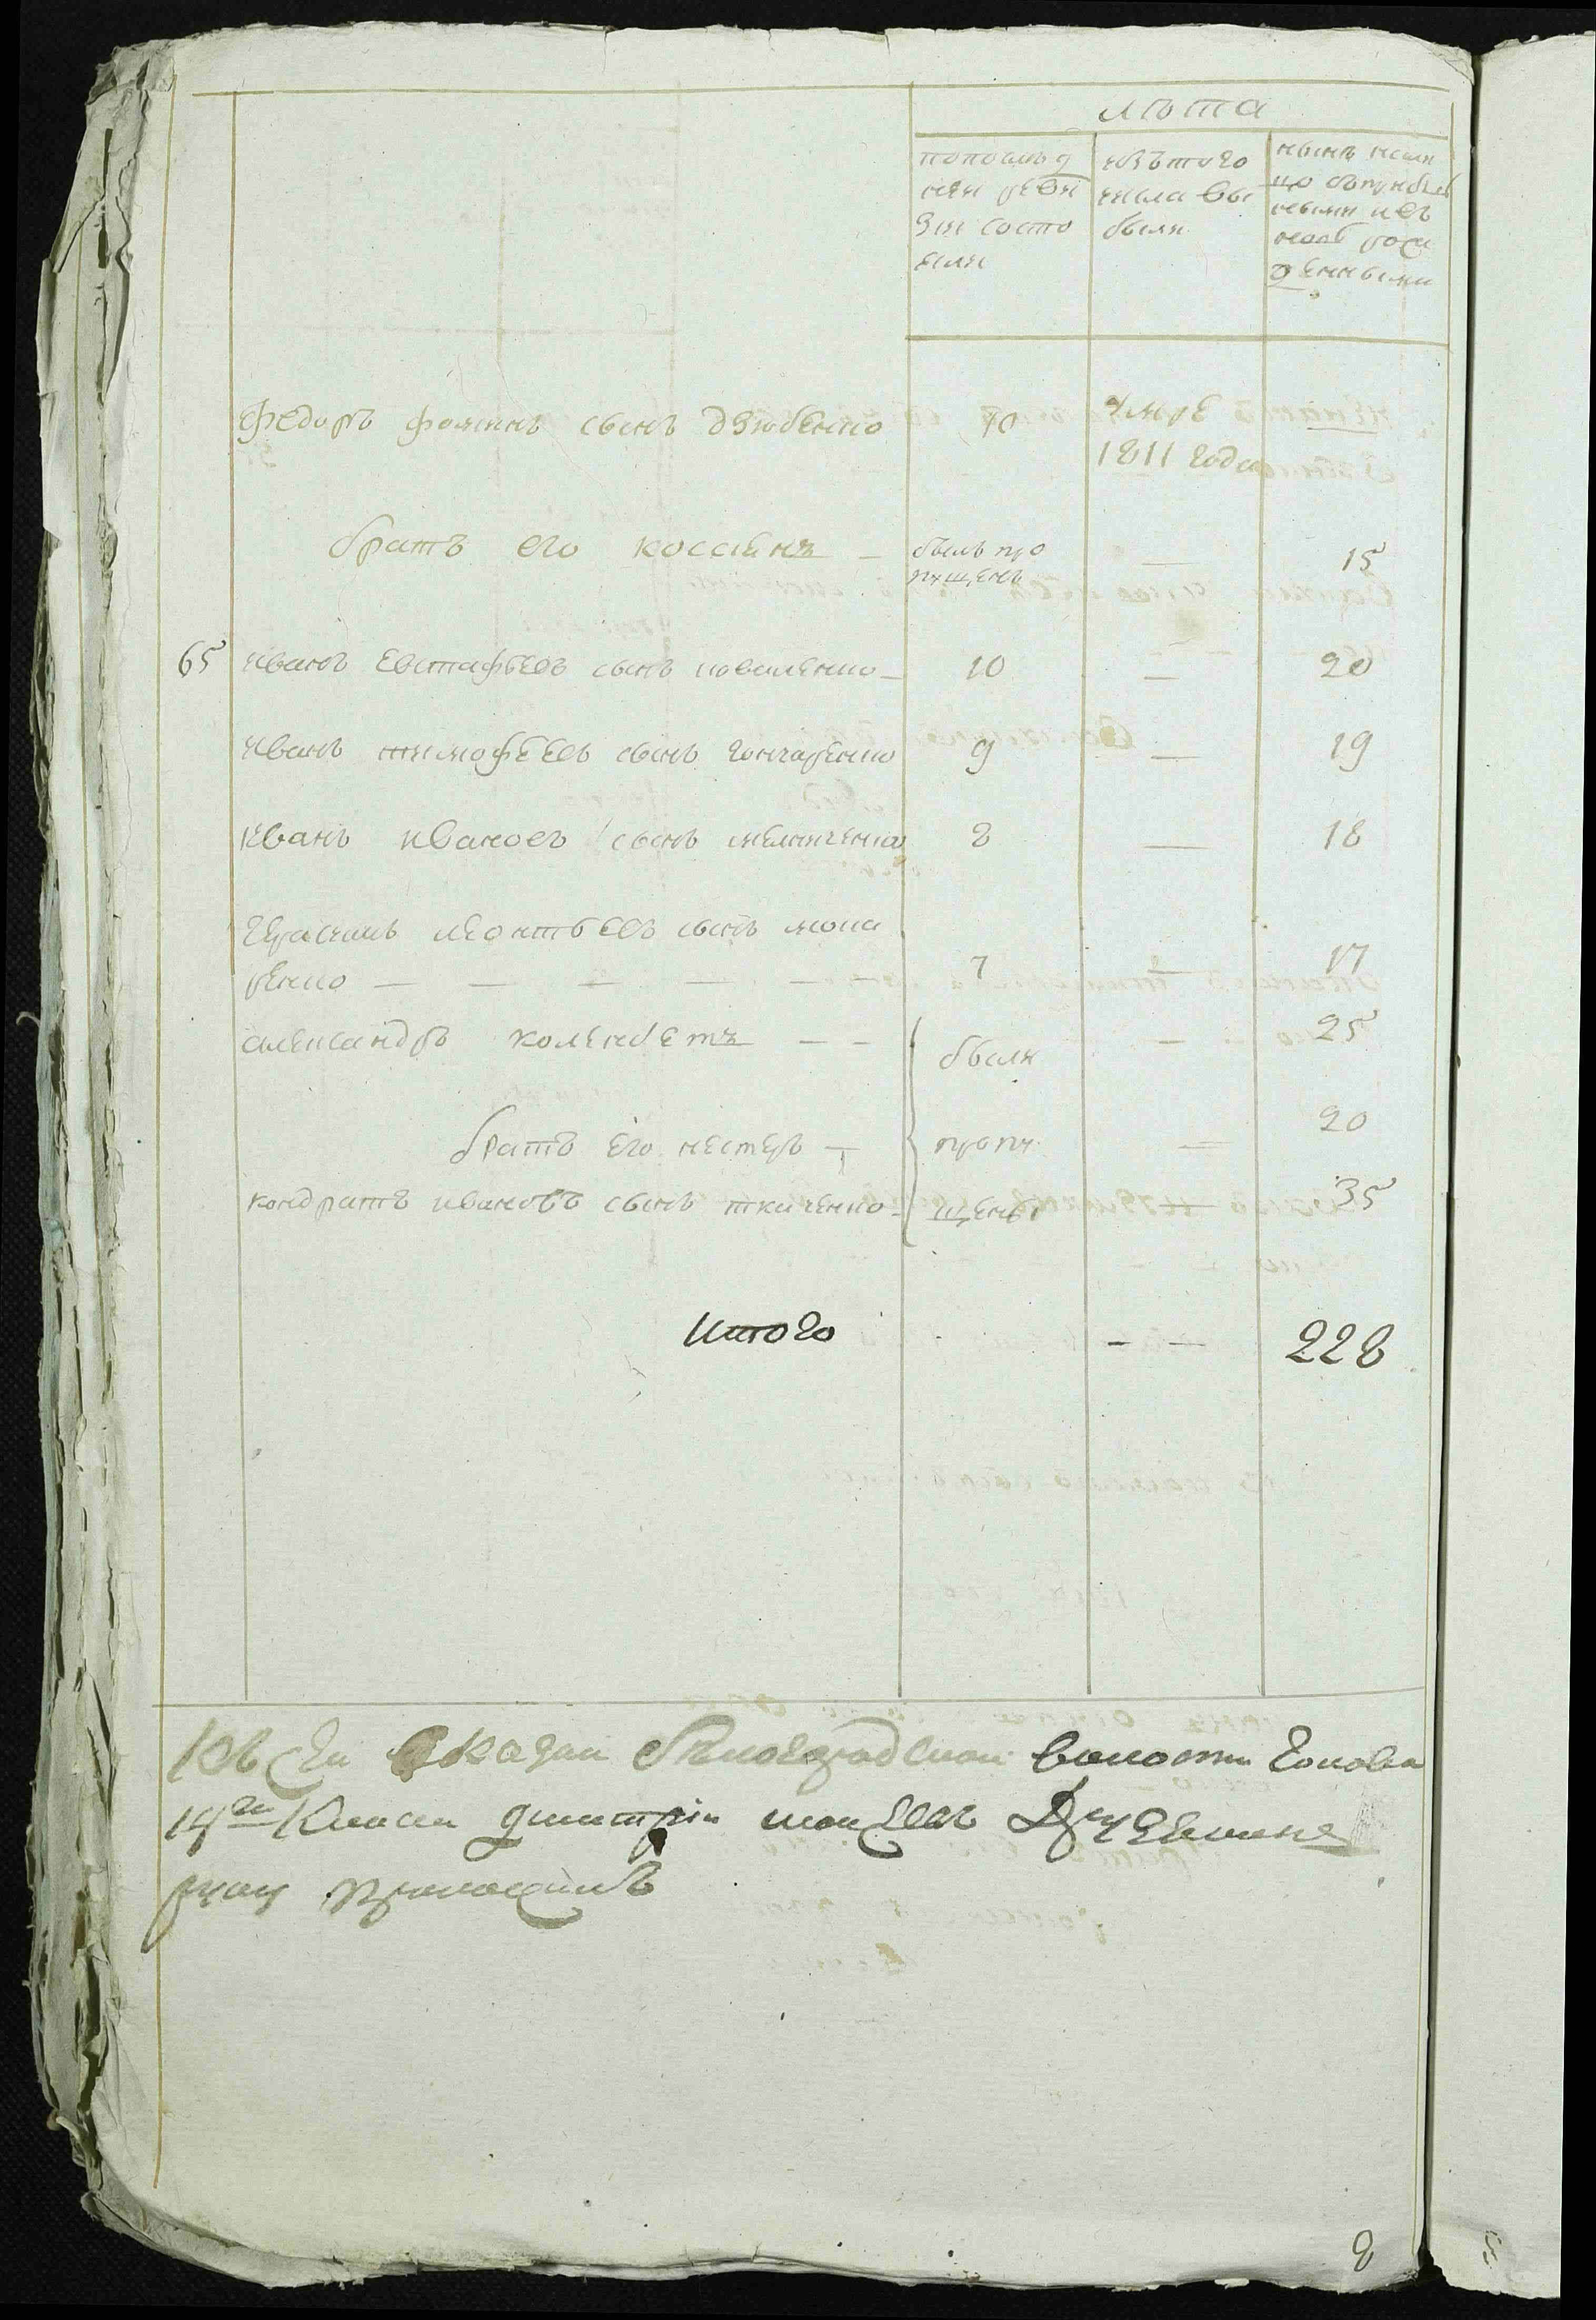 лѣта
по послѣд
ней реви
зіи состо
яли
изъ того
числа вы
были
нынѣ нали
цо съ прибыл
ными и въ
новь рож
денными
Федоръ фоминъ сынъ дзюбенко 10 умре
1811 года
братъ его кассіянъ — былъ про
пущенъ — 15
65 иванъ евстафьевъ сынъ коваленко — 10 — 20
иванъ тимофѣевъ сынъ гончаренко 9 — 19
иванъ ивановъ сынъ мелниченко 8 — 18
герасимъ леонтьевъ сынъ мока
ренко — — — — — — 7 — 17
александръ коленбетъ — — были — 25
братъ его нестеръ — пропу — 20
кондратъ ивановъ сынъ ткаченко — щены 35
Итого — — 228
Къ сей сказки волости голова
14го класса дмитрій
руку приложилъ
8